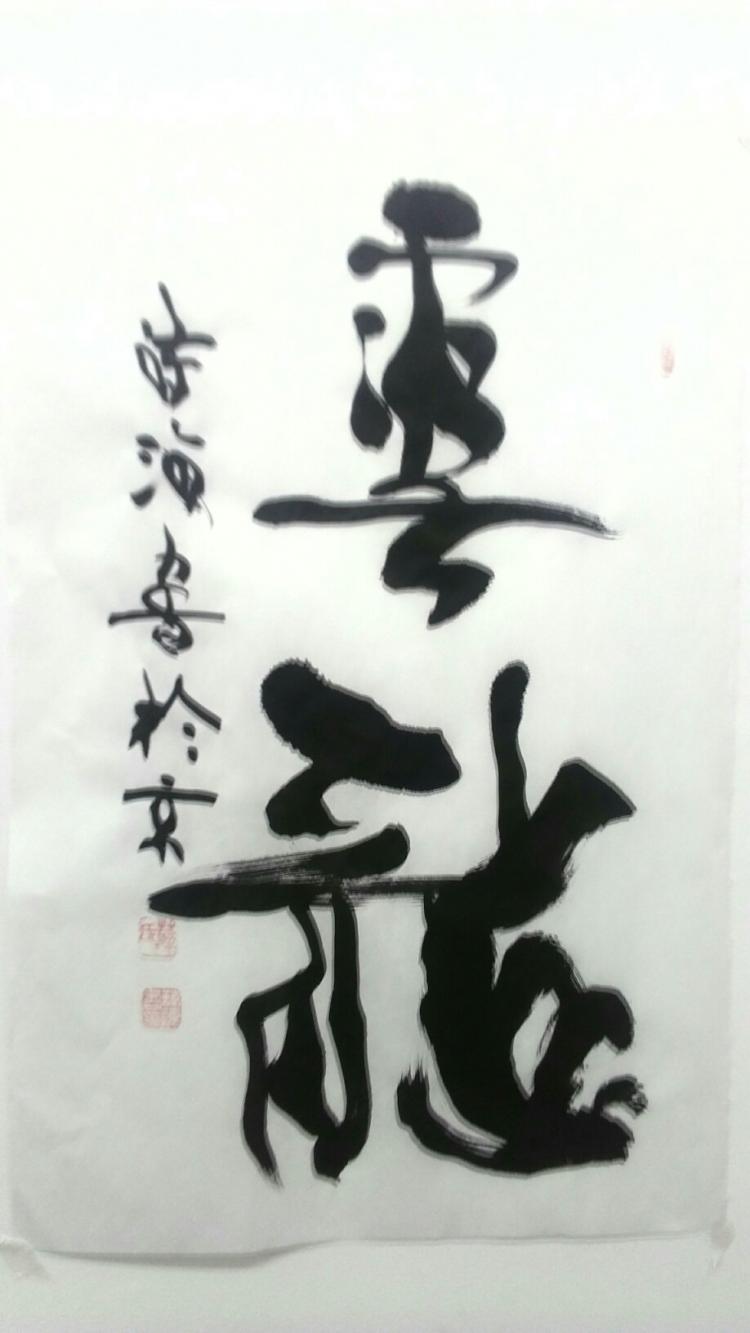 雲龍
海書於京